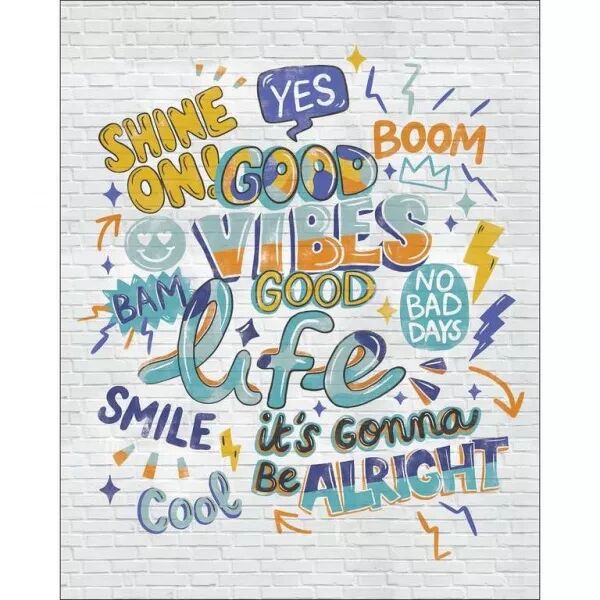 YES
SHINE
ON!
BOOM
GOOD
VIBES
BAM
GOOD
life
NO
BAD
DAYS
SMILE
it's Gonna
Be ALRIGHT
Cool